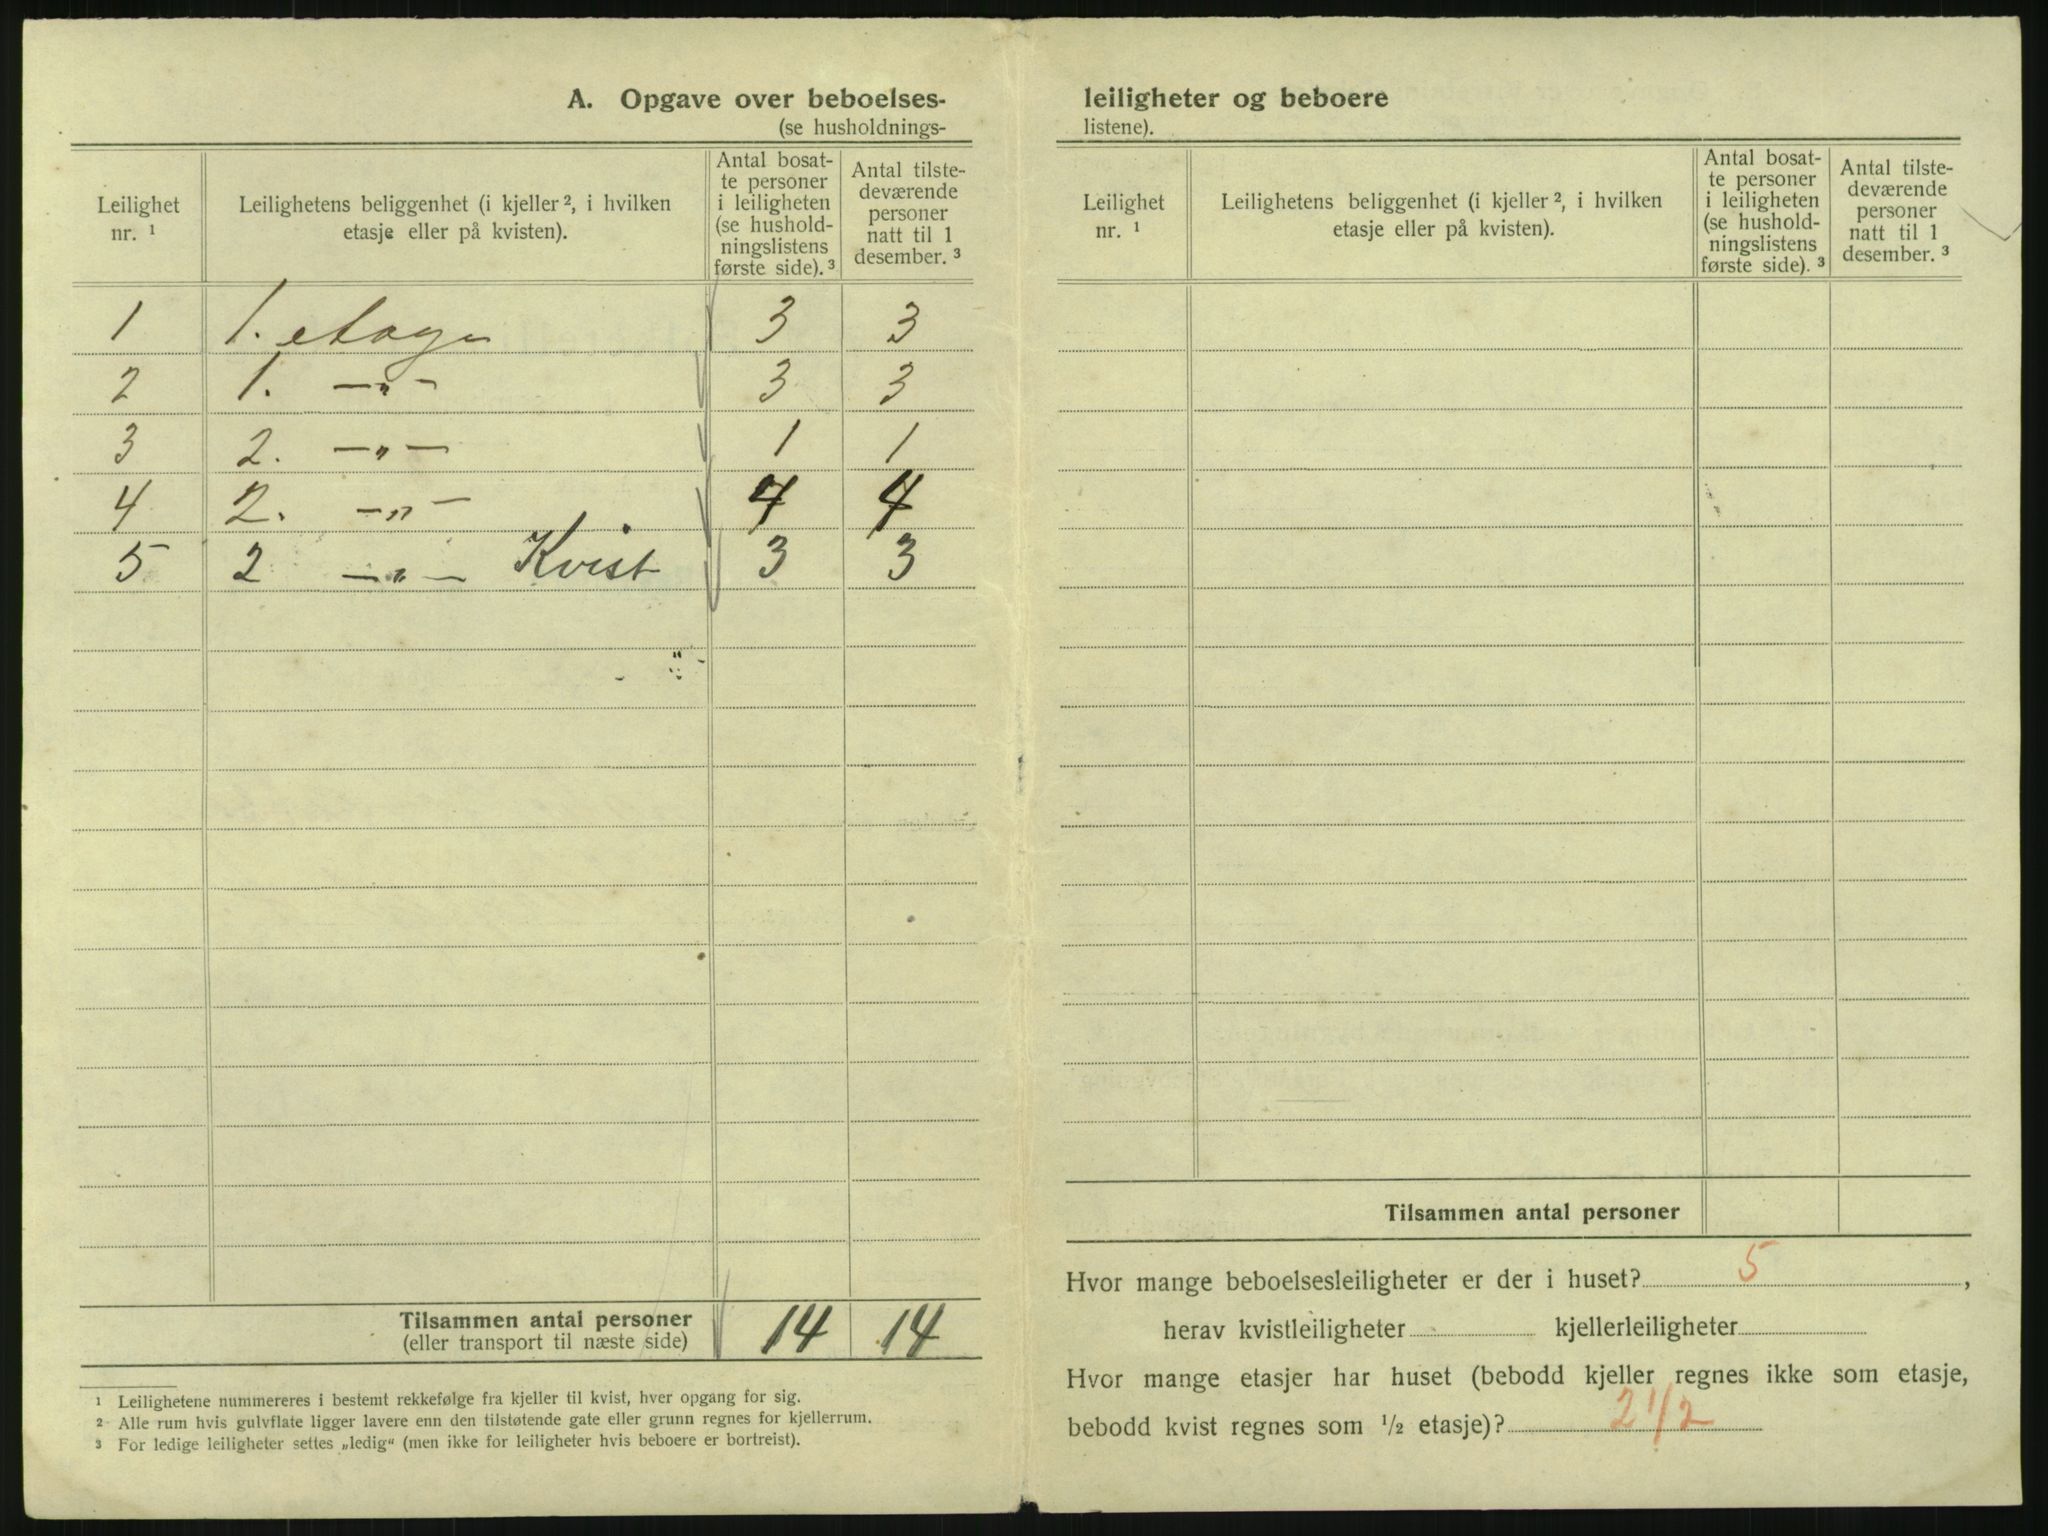 A. Opgave over beboelses-
(se husholdnings-
Leilighet nr. ¹
Leilighetens beliggenhet (i kjeller ², i hvilken etasje eller på kvisten).
Antal bosat-
te personer
i leiligheten
(se hushold-
ningslistens
første side). ³
Antal tilste-
deværende
personer
natt til 1
desember. ³
1 1. etage 3 3
2 1. —„— 3 3
3 2. —„— 1 1
4 2. —„— 4 4
5 2 —„— Kvist 3 3
Tilsammen antal personer 14 14
(eller transport til næste side)
¹ Leilighetene nummereres i bestemt rekkefølge fra kjeller til kvist, hver opgang for sig.
² Alle rum hvis gulvflate ligger lavere enn den tilstøtende gate eller grunn regnes for kjellerrum.
³ For ledige leiligheter settes „ledig“ (men ikke for leiligheter hvis beboere er bortreist).
leiligheter og beboere
listene).
Leilighet nr. ¹
Leilighetens beliggenhet (i kjeller ², i hvilken etasje eller på kvisten).
Antal bosat-
te personer
i leiligheten
(se hushold-
ningslistens
første side). ³
Antal tilste-
deværende
personer
natt til 1
desember. ³
Tilsammen antal personer
Hvor mange beboelsesleiligheter er der i huset? 5,
herav kvistleiligheter kjellerleiligheter
Hvor mange etasjer har huset (bebodd kjeller regnes ikke som etasje,
bebodd kvist regnes som ½ etasje)? 2 1/2